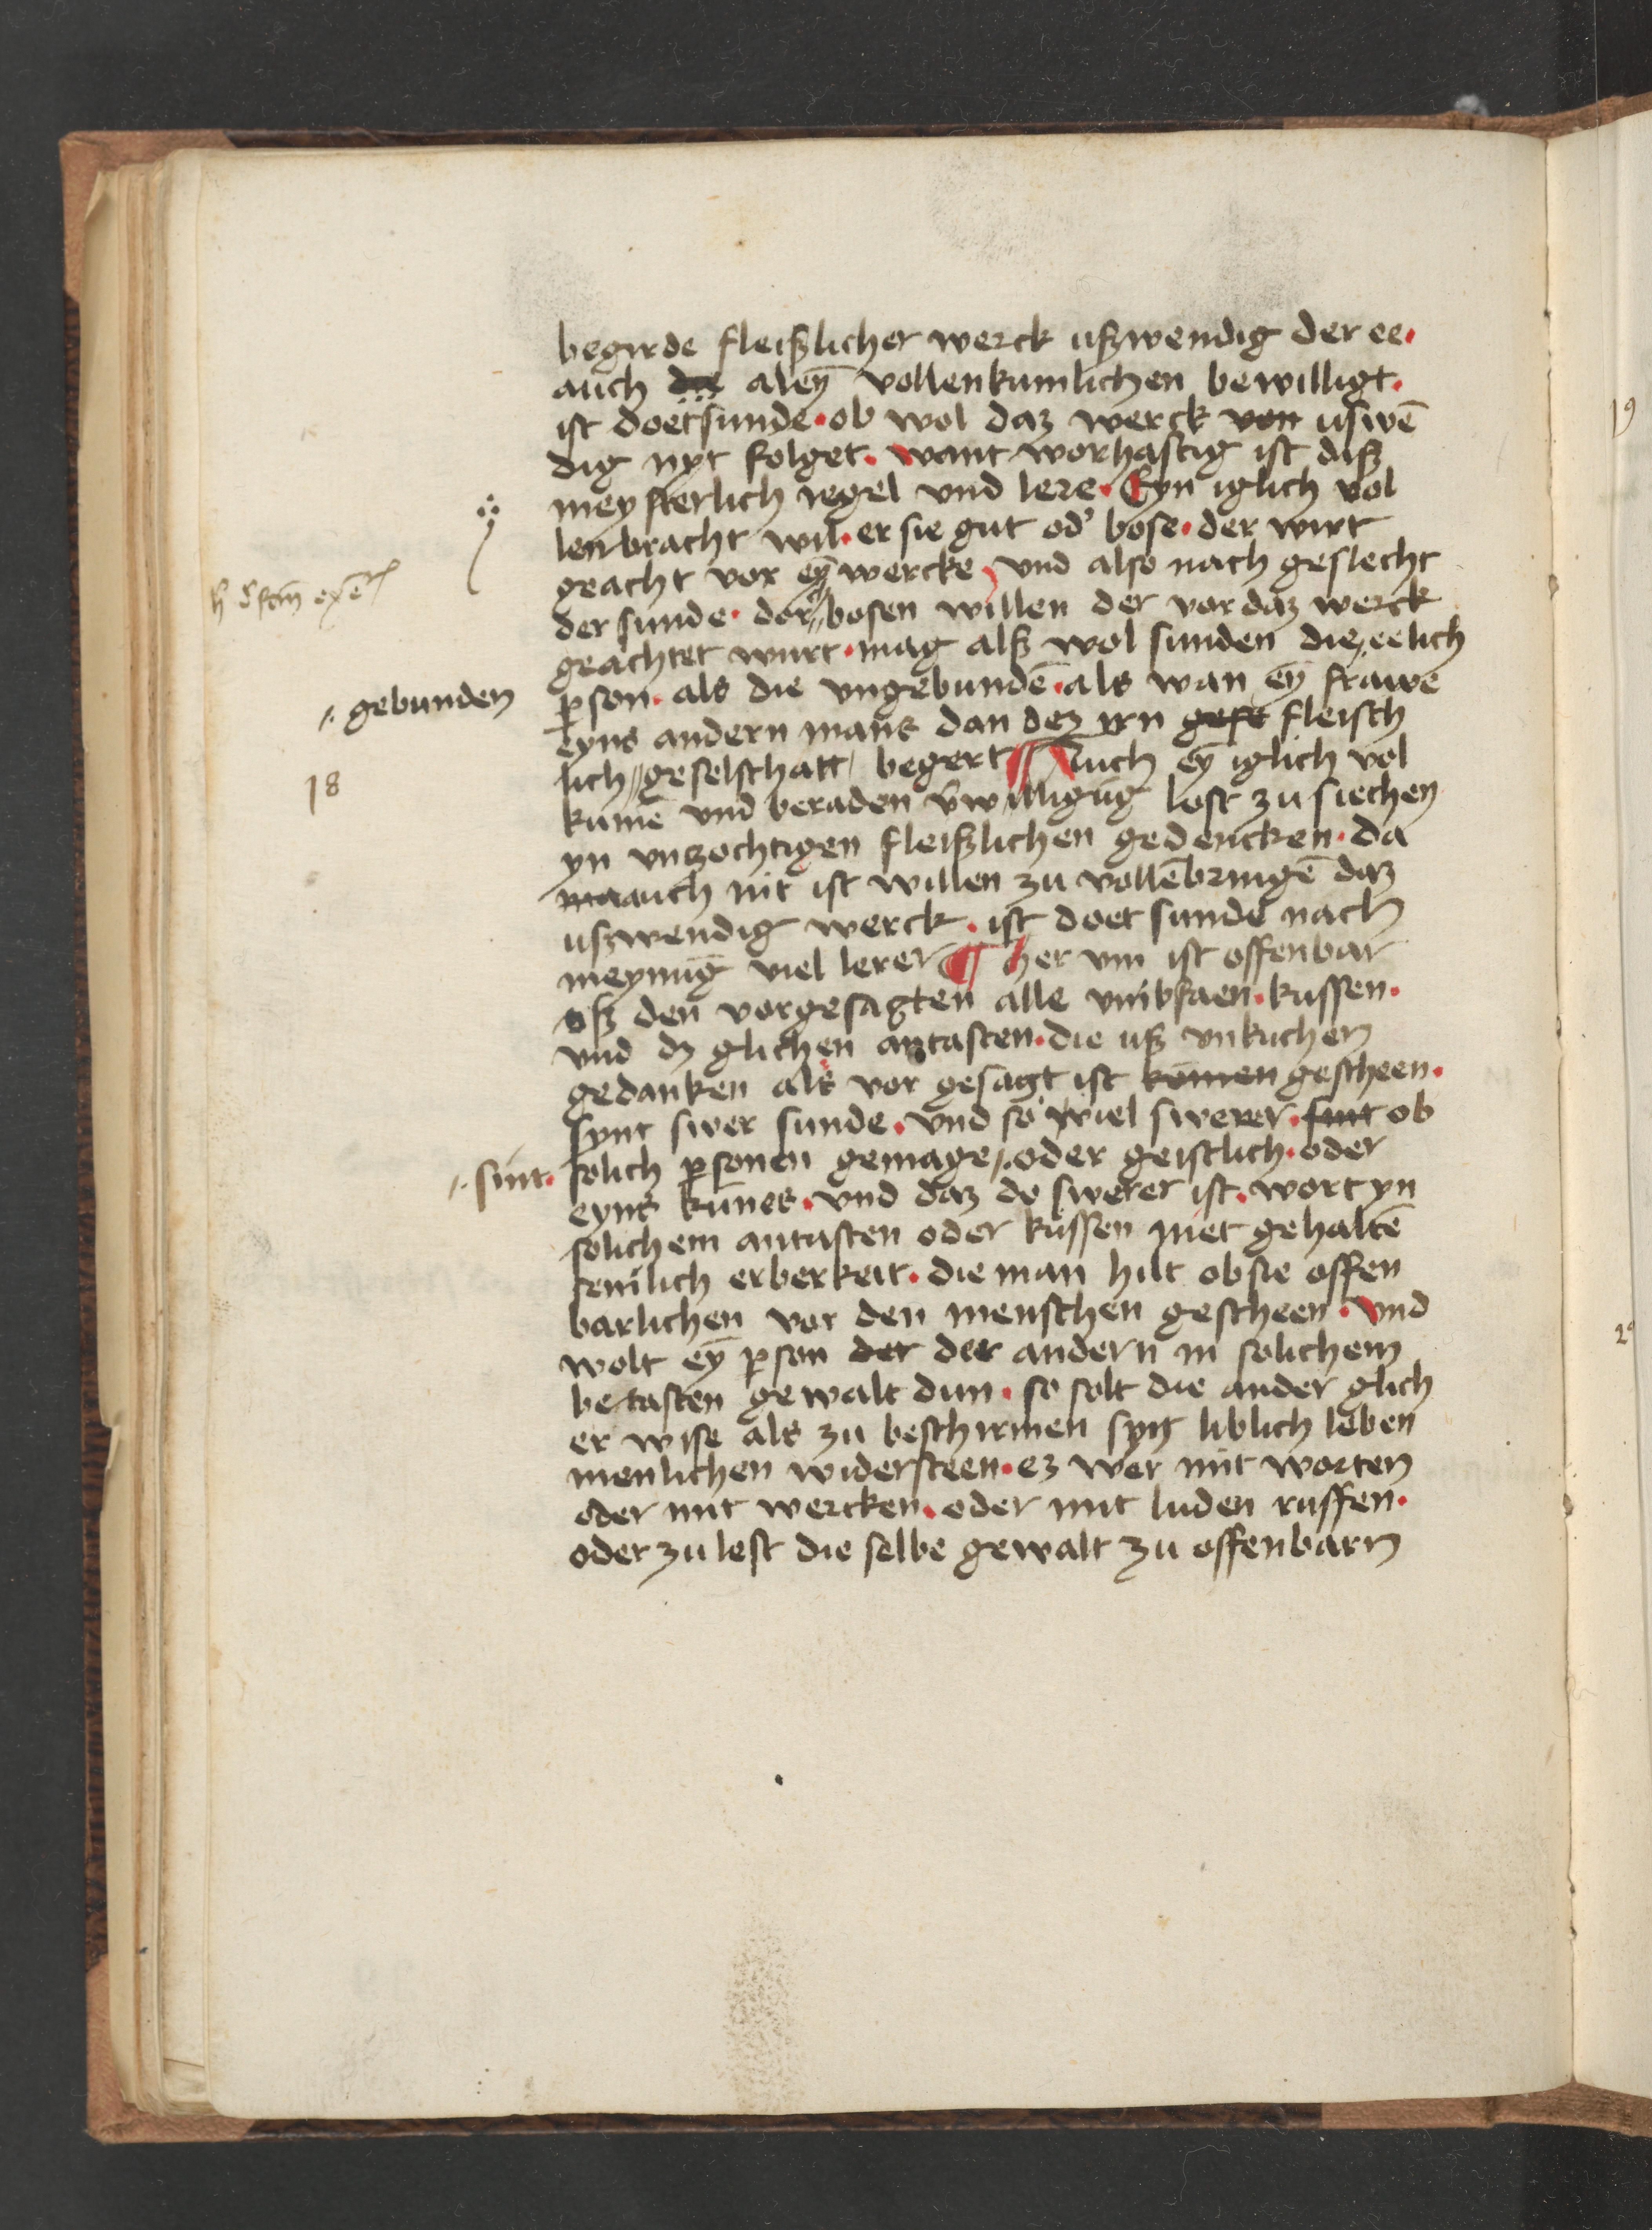 begirde fleißlicher werck ußwendig der ee.
auch die aleyn̄ vollenkumlichen bewilligt.
ist doetsunde. ob wol daz werck von uswē
dig nyt folget. want worhastig ist diß
meysterlich regel vnd lere. Eyn iglich vol
lenbracht wil. er sie gut od' bose. der wirt
geacht vor eȳ wercke, vnd also nach geslecht
der sunde. der bosen willen der vor daz werck
geachtet wurt. mag alß wol sunden die eelich
gebunden
p̱son. als die vngebundē. als wan eȳ frawe
eyns andern mans dan dez irn gese fleisch
lich geselschatt begert ¶ Auch eȳ iglich vol
18
kumē vnd beraden v̄willigūg lost zu siechen
yn vnzochtigen fleißlichen gedencken. da
ma auch nit ist willen zu vollēbringē daz
ußwendig werck. ist doet sunde nach
meynūg viel lerer ¶ her vm ist offenbar
uß den vorgesagten alle vmbfaen. kussen.
vnd dz glichen antasten. die uß vnkuchen
gedanken als vor gesagt ist komen gescheen.
synt swer sunde. vnd so viel swerer. sint ob
sint. solich p̱sonen gemage. oder geistlich. oder
eyns kunes. vnd daz do swerer ist. wort yn
solichem antasten oder kussen niet gehaltē
semlich erberkeit. die man hilt ob sie offen
barlichen vor den menschen gescheen. vnd
wolt eȳ p̱son der der andern in solichem
betasten gewalt dun. so solt die ander glich
er wise als zu beschirmen syn liblich leben
menlichen widersteen. ez wer mit worten
oder mit wercken. oder mit luden ruffen.
oder zu lest die selbe gewalt zu offenbarn
19